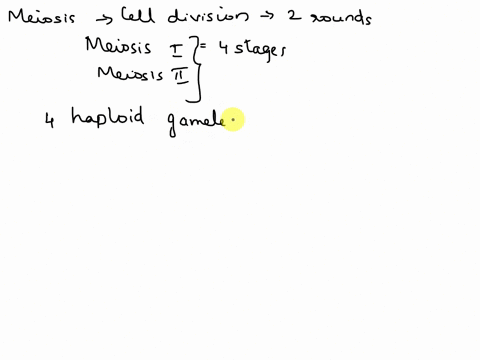 Meiosis → Cell division → 2 rounds
Meiosis I = 4 stages
Meiosis II
4 haploid gamete